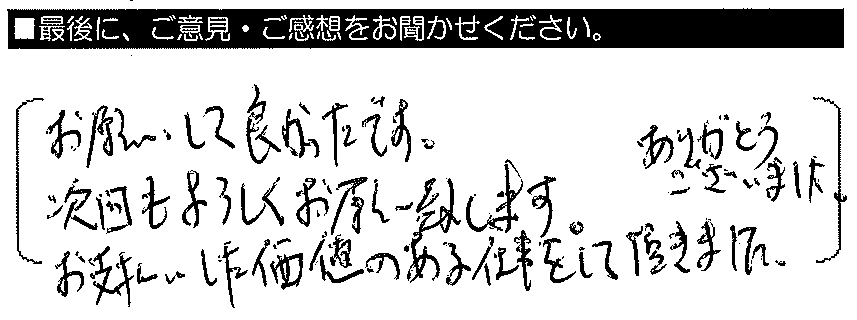 ■最後に、ご意見・ご感想をお聞かせください。
お願いして良かったです。
次回もよろしくお願い致します。
お支払いした価値のある仕事をして頂きました。
ありがとう
ございました。